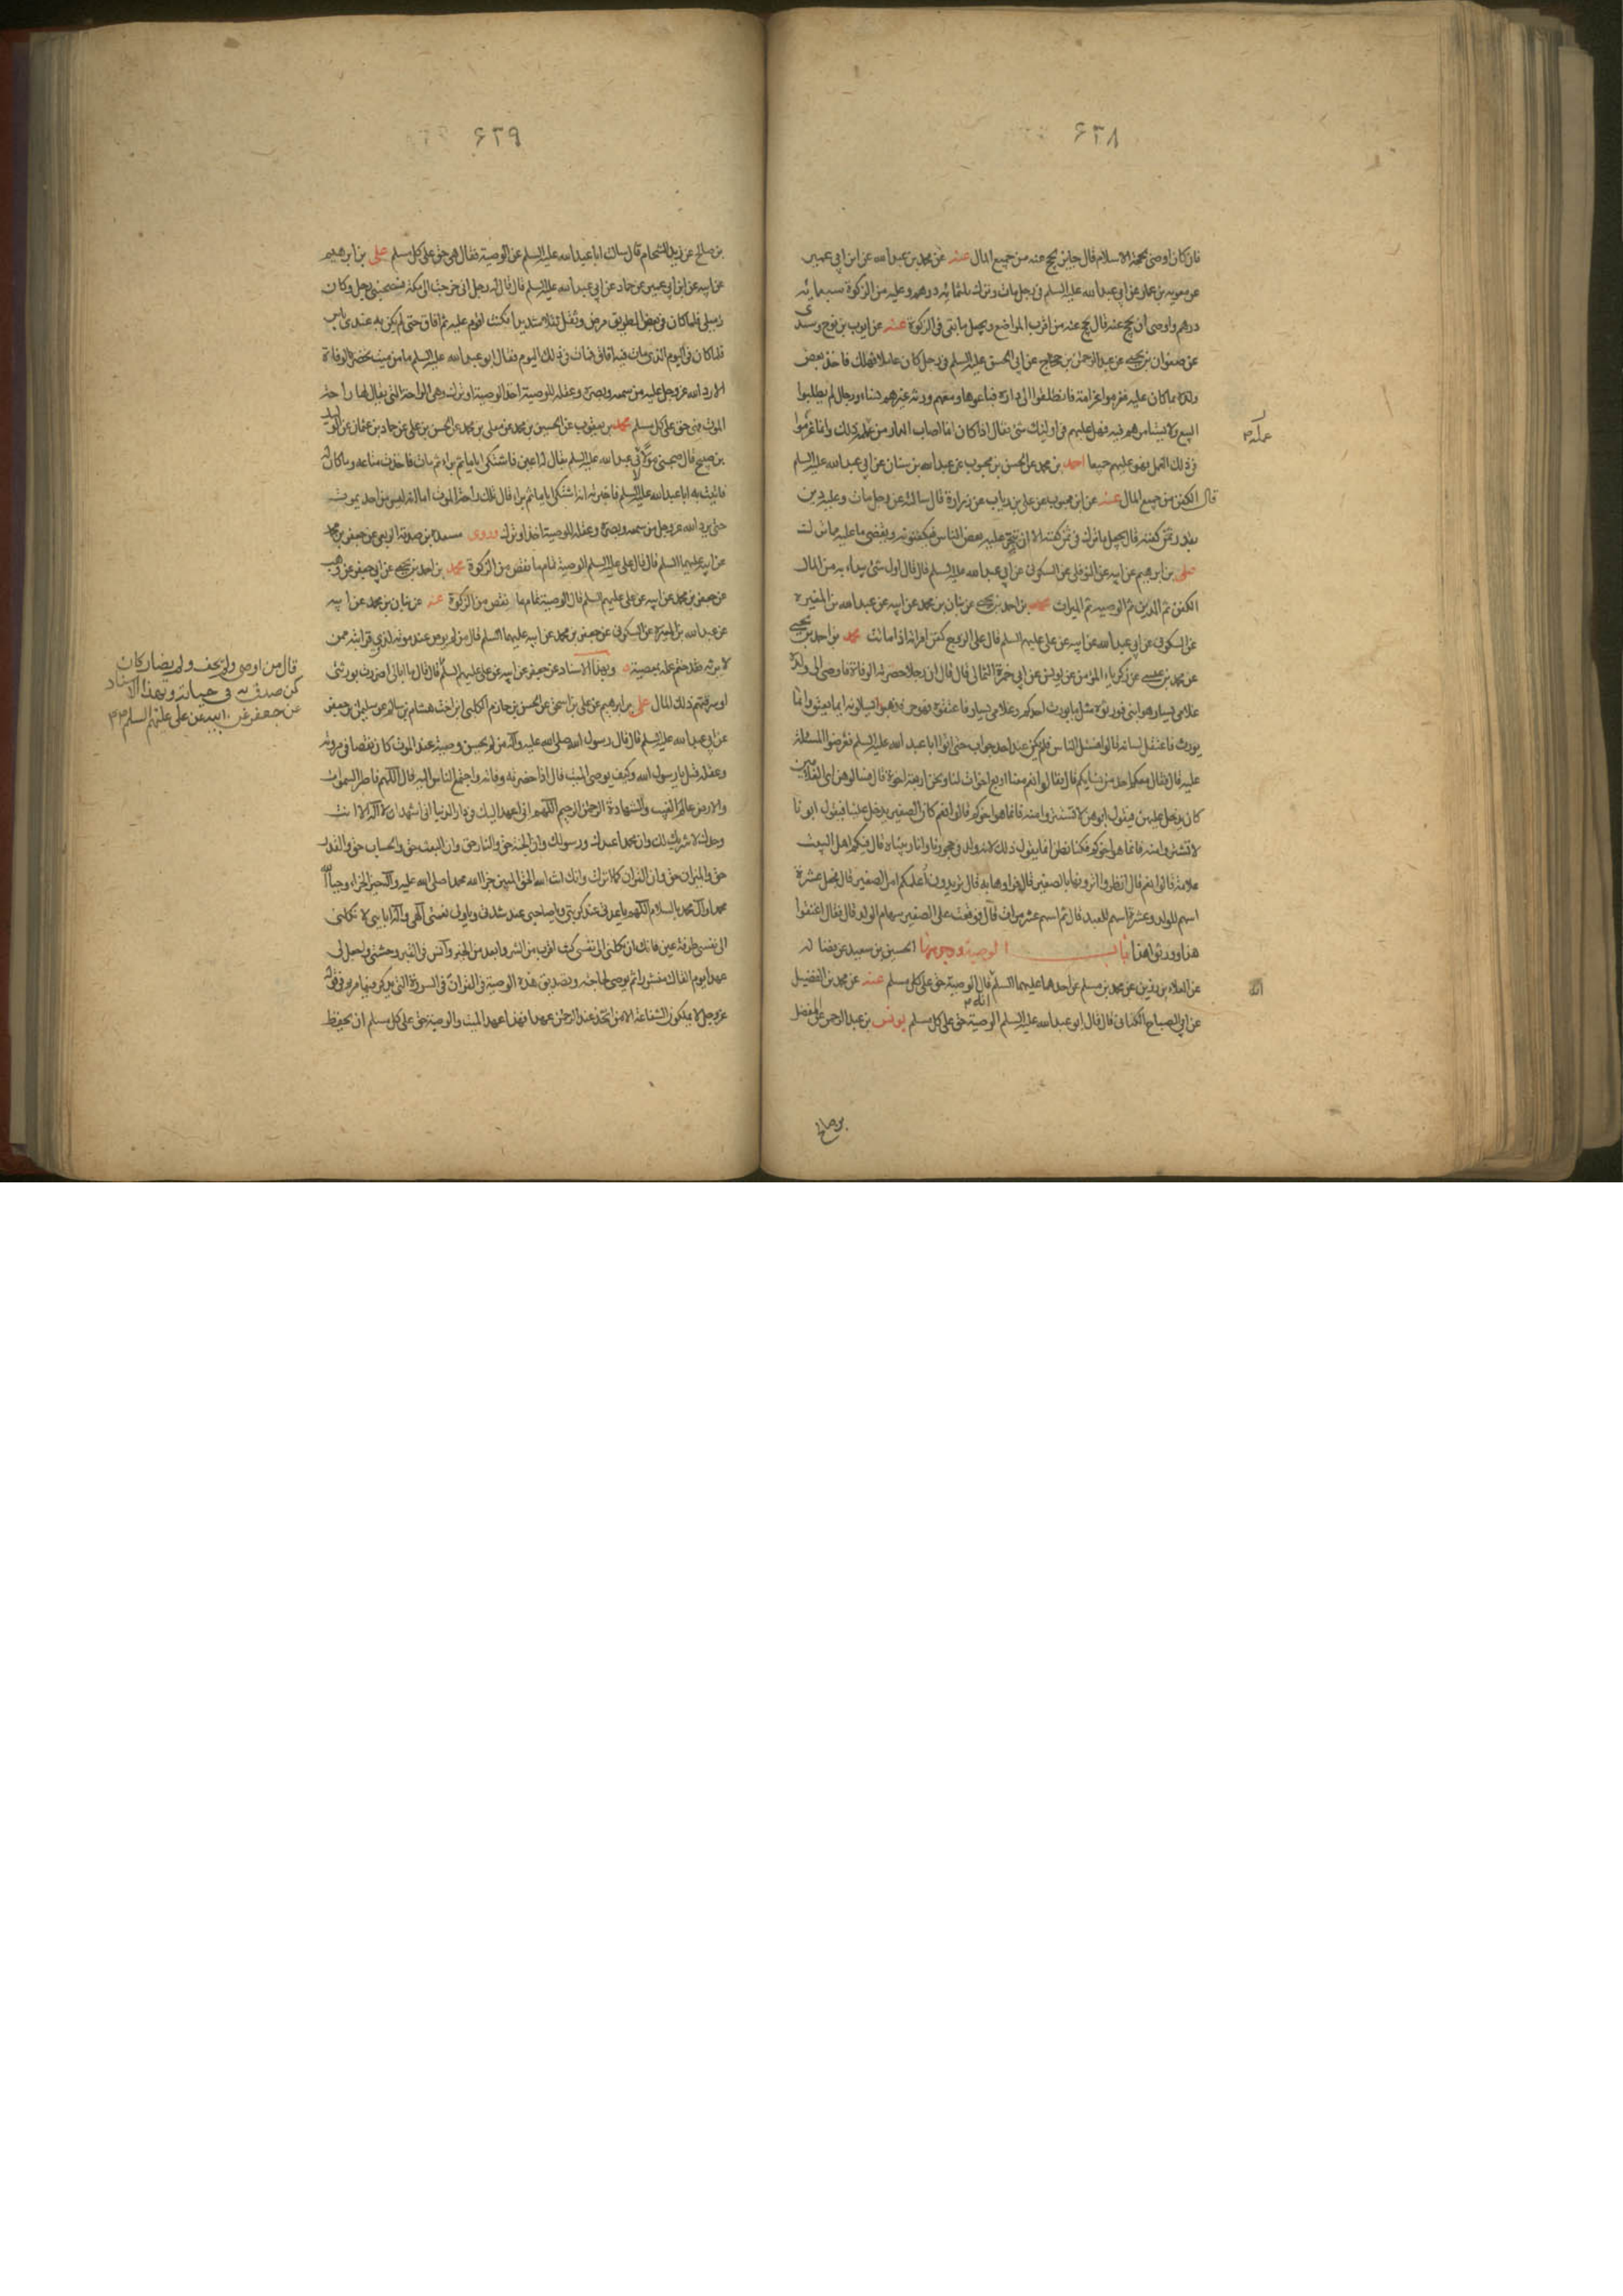 ۶۲۸
فان كان اوصى بحجة الاسلام قال جايز يحج عنه من جميع المال عنه عن محمد بن عبد الله عن ابن ابي عمير
عن معوية بن عمار عن ابي عبد الله عليه السلم في رجل مات وترك ثلثمائة درهم وعليه من الزكوة سبعمائة
درهم واوصى ان يحج عنه قال يحج عنه من اقرب المواضع ويجعل ما بقى في الزكوة عنه عن ايوب بن نوح وسندى
عن صفوان بن يحيى عن عبد الرحمن بن حجاج عن ابي الحسن عليه السلم في رجل كان عاملا فهلك فاخذ بعض
ولده بما كان عليه فغرموا غرامة فانطلقوا الى داره فباعوها ومعهم ورثة غيرهم نساء ورجال لم يطلبوا
البيع ولا يستامرهم فيه فهل عليهم في اولئك شئ فقال اذا كان انما اصاب الدار من عمله ذلك وانما غرموا
في ذلك العمل فهو عليهم جميعا احمد بن محمد عن الحسن بن محبوب عن عبد الله بن سنان عن ابي عبد الله عليه السلم
قال الكفن من جميع المال عنه عن ابن محبوب عن علي بن رياب عن زرارة قال سالته عن رجل مات وعليه دين
بقدر ثمن كفنه قال يجعل ما ترك في ثمن كفنه الا ان يتجر عليه بعض الناس فيكفنونه ويقضى ما عليه مما ترك
علي بن ابرهيم عن ابيه عن النوفلى عن السكونى عن ابي عبد الله عليه السلم قال قال اول شئ يبداء به من المال
الكفن ثم الدين ثم الوصية ثم الميراث محمد بن احمد بن يحيى عن بنان بن محمد عن ابيه عن عبد الله بن المغيرة
عن السكونى عن ابي عبد الله عن ابيه عن علي عليهم السلم قال على الزوج كفن امراته اذا ماتت محمد بن احمد بن يحيى
عن محمد بن عيسى عن زكرياء المومن عن يونس عن ابي حمزة الثمالى قال قال ان رجلا حضرته الوفاة فاوصى الى ولده
غلامى يسار هو ابنى فورثوه مثل ما يورث احدكم وغلامى يسار فاعتقوه فهو حر فذهبوا يسالونه ايما يعتق وايما
يورث فاعتقل لسانه قال فسئل الناس فلم يكن عند احد جواب حتى اتوا ابا عبد الله عليه السلم فعرضوا المسئلة
عليه قال فقال معكم احد من نسايكم قال فقالوا نعم معنا اربع اخوات لنا ونحن اربعة اخوة قال فسالوهن اى الغلامين
كان يدخل عليهن فيقول ابوهن لا تستترن منه فانما هو اخوكن قالوا نعم كان الصغير يدخل علينا فيقول ابونا
لا تستترن منه فانما هو اخوكن فكنا نظن انما يقول ذلك لانه ولد في حجورنا وانا ربيناه قال فيكم اهل البيت
علامة قالوا نعم قال انظروا اترونها بالصغير قال فراوها به قال تريدون اعلمكم امر الصغير قال فجعل عشرة
اسهم للولد وعشرة اسهم للعبد قال ثم اسهم عشر مرات قال فوقعت على الصغير سهام الولد قال فقال اعتقوا
هذا وورثوا هذا باب الوصية ووجوبها الحسين بن سعيد عن فضالة
عن العلاء بن رزين عن محمد بن مسلم عن احدهما عليهما السلم قال الوصية حق على كل مسلم عنه عن محمد بن الفضيل
عن ابي الصباح الكنانى قال قال ابو عبد الله عليه السلم الوصية حق على كل مسلم يونس بن عبد الرحمن عن المفضل
عمله
بن صالح
۶۲۹
بن صالح عن زيد الشحام قال سالت ابا عبد الله عليه السلم عن الوصية فقال هى حق على كل مسلم علي بن ابرهيم
عن ابيه عن ابن ابي عمير عن حماد عن ابي عبد الله عليه السلم قال قال له رجل انى خرجت الى مكة فصحبنى رجل وكان
زميلى فلما كان في بعض الطريق مرض وثقل ثقلا شديدا فكنت اقوم عليه ثم افاق حتى لم يكن به عندى باس
فلما كان في اليوم الذى مات فيه افاق فمات في ذلك اليوم فقال ابو عبد الله عليه السلم ما من ميت تحضره الوفاة
الا رد الله عز وجل عليه من سمعه وبصره وعقله للوصية اخذ الوصية او ترك وهى الراحة التى يقال لها راحة
الموت فهى حق على كل مسلم محمد بن يعقوب عن الحسين بن محمد عن معلى بن محمد عن الحسن بن على عن حماد بن عثمان عن الوليد
بن صبيح قال صحبنى مولى لابي عبد الله عليه السلم يقال له اعين فاشتكى اياما ثم برا ثم مات فاخذت متاعه وما كان له
فاتيت به ابا عبد الله عليه السلم فاخبرته انه اشتكى اياما ثم برا ثم مات قال تلك راحة الموت اما انه ليس من احد يموت
حتى يرد الله عز وجل من سمعه وبصره وعقله للوصية اخذ او ترك وروى مسعدة بن صدقة الربعى عن جعفر بن محمد
عن ابيه عليهما السلم قال قال علي عليه السلم الوصية تمام ما نقص من الزكوة محمد بن احمد بن يحيى عن ابي جعفر عن وهب
عن جعفر بن محمد عن ابيه عن علي عليهم السلم قال الوصية تمام ما نقص من الزكوة عنه عن بنان بن محمد عن ابيه
عن عبد الله بن المغيرة عن السكونى عن جعفر بن محمد عن ابيه عليهما السلم قال من لم يوص عند موته لذوى قرابته ممن
لا يرثه فقد ختم عمله بمعصية وبهذا الاسناد عن جعفر عن ابيه عن علي عليهم السلم قال قال ما ابالى اضررت بورثتى
او سرقتهم ذلك المال علي بن ابرهيم عن علي بن اسحق عن الحسن بن حازم الكلبى ابن اخت هشام بن سالم عن سليمان بن جعفر
عن ابي عبد الله عليه السلم قال قال رسول الله صلى الله عليه وآله من لم يحسن وصيته عند الموت كان نقصا في مروته
وعقله قيل يا رسول الله وكيف يوصى الميت قال اذا حضرته وفاته واجتمع الناس اليه قال اللهم فاطر السموات
والارض عالم الغيب والشهادة الرحمن الرحيم اللهم انى اعهد اليك في دار الدنيا انى اشهد ان لا اله الا انت
وحدك لا شريك لك وان محمدا عبدك ورسولك وان الجنة حق والنار حق وان البعث حق والحساب حق والقدر
حق والميزان حق وان القران كما انزلت وانك انت الله الحق المبين جزا الله محمدا صلى الله عليه وآله خير الجزاء وحيا الله
محمدا وآل محمد بالسلام اللهم يا عدتى عند كربتى ويا صاحبى عند شدتى ويا ولى نعمتى الهى واله ابايى لا تكلنى
الى نفسى طرفة عين فانك ان تكلنى الى نفسى كنت اقرب من الشر وابعد من الخير وآنس في القبر وحشتى واجعل لى
عهدا يوم القاك منشورا ثم يوصى بحاجته وتصديق هذه الوصية في القران في السورة التى يذكر فيها مريم في قوله
عز وجل لا يملكون الشفاعة الا من اتخذ عند الرحمن عهدا فهذا عهد الميت والوصية حق على كل مسلم ان يحفظ
قال من اوصى ولم يحف ولم يضار كان
كمن صدق به في حياته وبهذا الاسناد
عن جعفر عن ابيه عن علي عليهم السلم